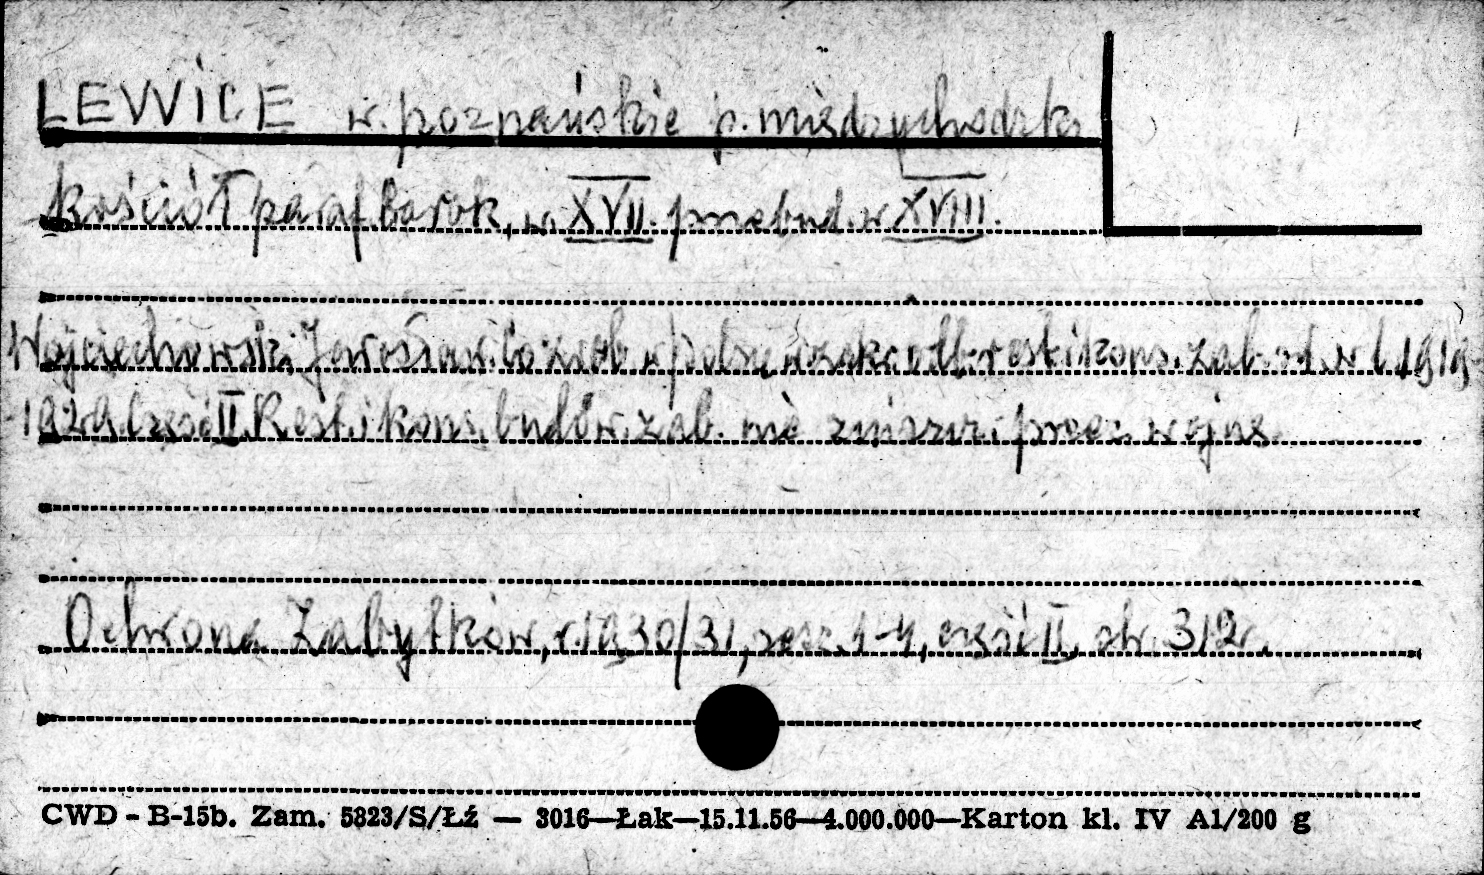 LEWICE w. poznańskie p. międzychodzki
kościół paraf. barok, w. XVII. przebud. w XVIII.
Wojciechowski Jarosław. Co zrob. w Polsce w zakr. odb. rest. i kons. zab. od. w l. 1919
-1929. Część II. Rest. i kons. budów. zab. nie zniszcz. przez wojnę.
Ochrona Zabytków, r. 1930/31, zesz. 1-4, część II, str. 312.
CWD - B-15b. Zam. 5823/S/Łź — 3016—Łak—15.11.56—4.000.000—Karton kl. IV A1/200 g